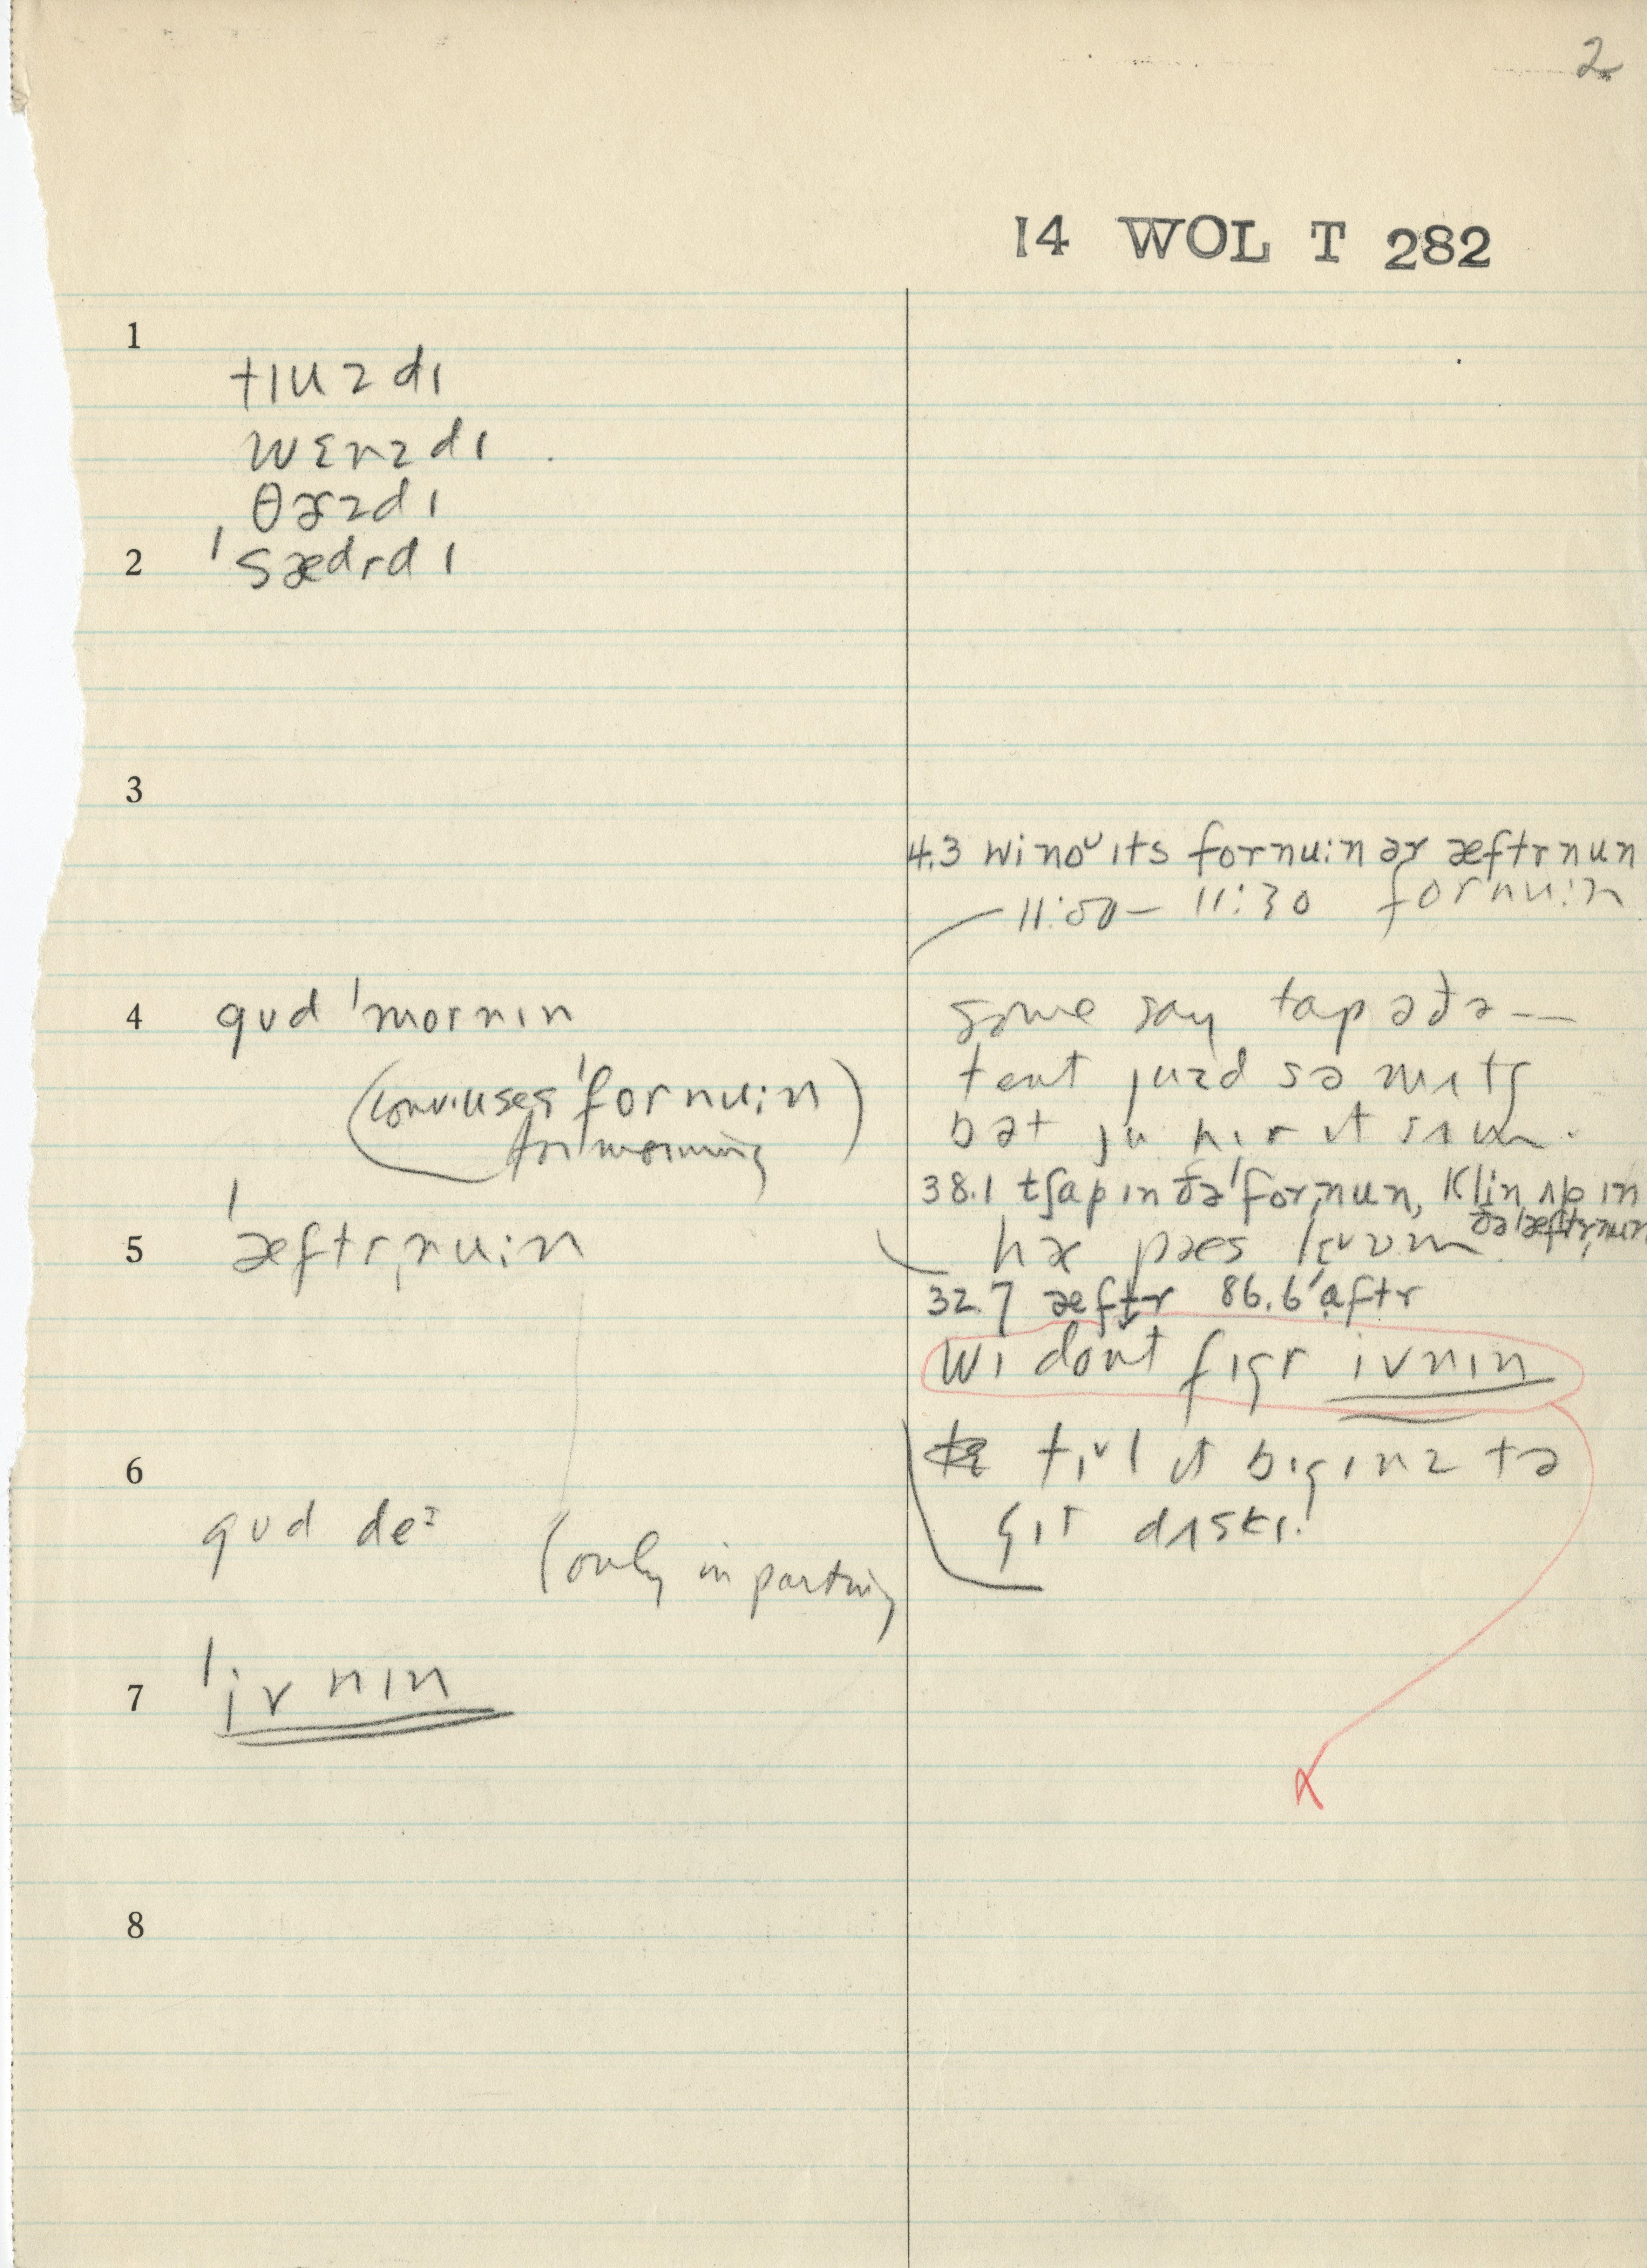 2
14 WOL T 282
1
tɪuzdɪ
wɛnzdɪ
θɝzdɪ
2 ˈsædrdɪ
3
4.3 wi noᵘ ɪts fornuːn ər æftrnun
11:00 – 11:30 fornuːn
4 gʊd ˈmornɪn
(conv. uses ˈfornuːn)
for morning
some say tap əðə —
tent juzd sə mʌtʃ
bət ju hɪr ɪt sʌm.
38.1 tʃap ɪn ðə ˈforˌnun, klin ʌp ɪn
ðə ˈæftrˌnun
5 ˈæftrˌnuːn
hæ pæs
32.7 æftr 86.6 ˈaftr
wɪ dont fɪgr ivnɪn
6
tɪl ɪt bɪgɪnz tə
gɪt dʌskɪ.
gʊd deᶦ (only in parting
7 ˈivnɪn
8